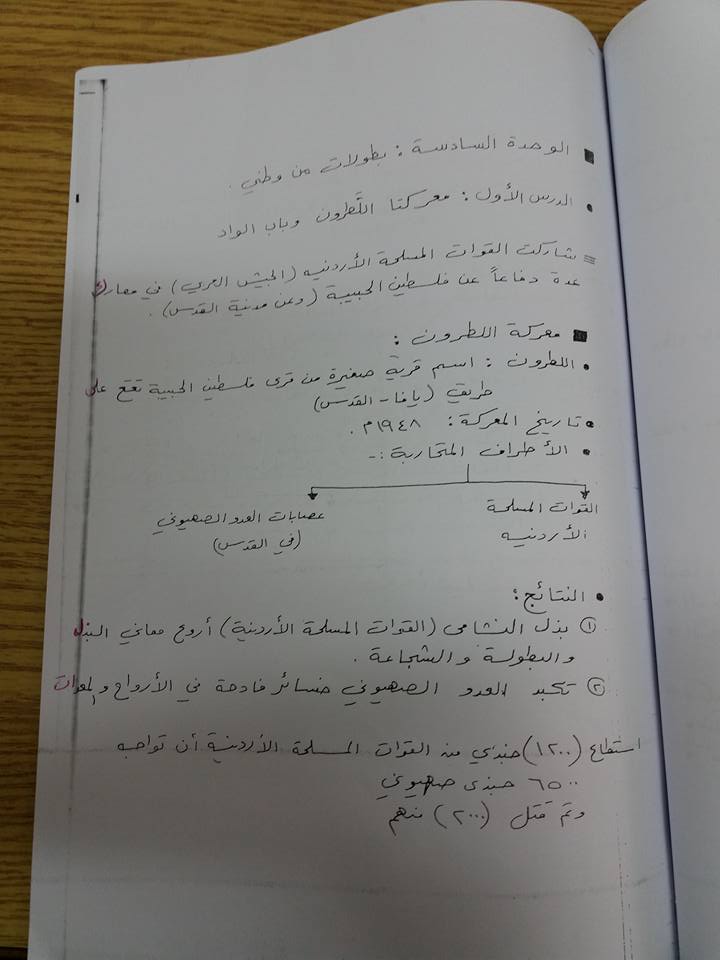 الوحدة السادسة : بطولات من وطني .
الدرس الأول : معركتا اللَّطرون وباب الواد
شاركت القوات المسلحة الأردنيه (الجيش العربي) في معارك
عدة دفاعاً عن فلسطين الحبيبة (وعن مدنية القدس) .
معركة اللطرون :
اللطرون : اسم قرية صغيرة من قرى فلسطين الحبيبة تقع على
طريق (يافا - القدس)
تاريخ المعركة : ١٩٤٨م .
الأطراف المتحاربة :-
القوات المسلحة
الأردنيه
عصابات العدو الصهيوني
(في القدس)
النتائج :
① بذل النشامى (القوات المسلحة الأردنية) أروع معاني البذل
والبطولة والشجاعة .
② تكبد العدو الصهيوني خسائر فادحة في الأرواح والمعدات
استطاع (١٢٠٠) جندي من القوات المسلحة الأردنية أن تواجه
٦٥٠٠ جندي صهيوني
وتم قتل (٢٠٠٠) منهم